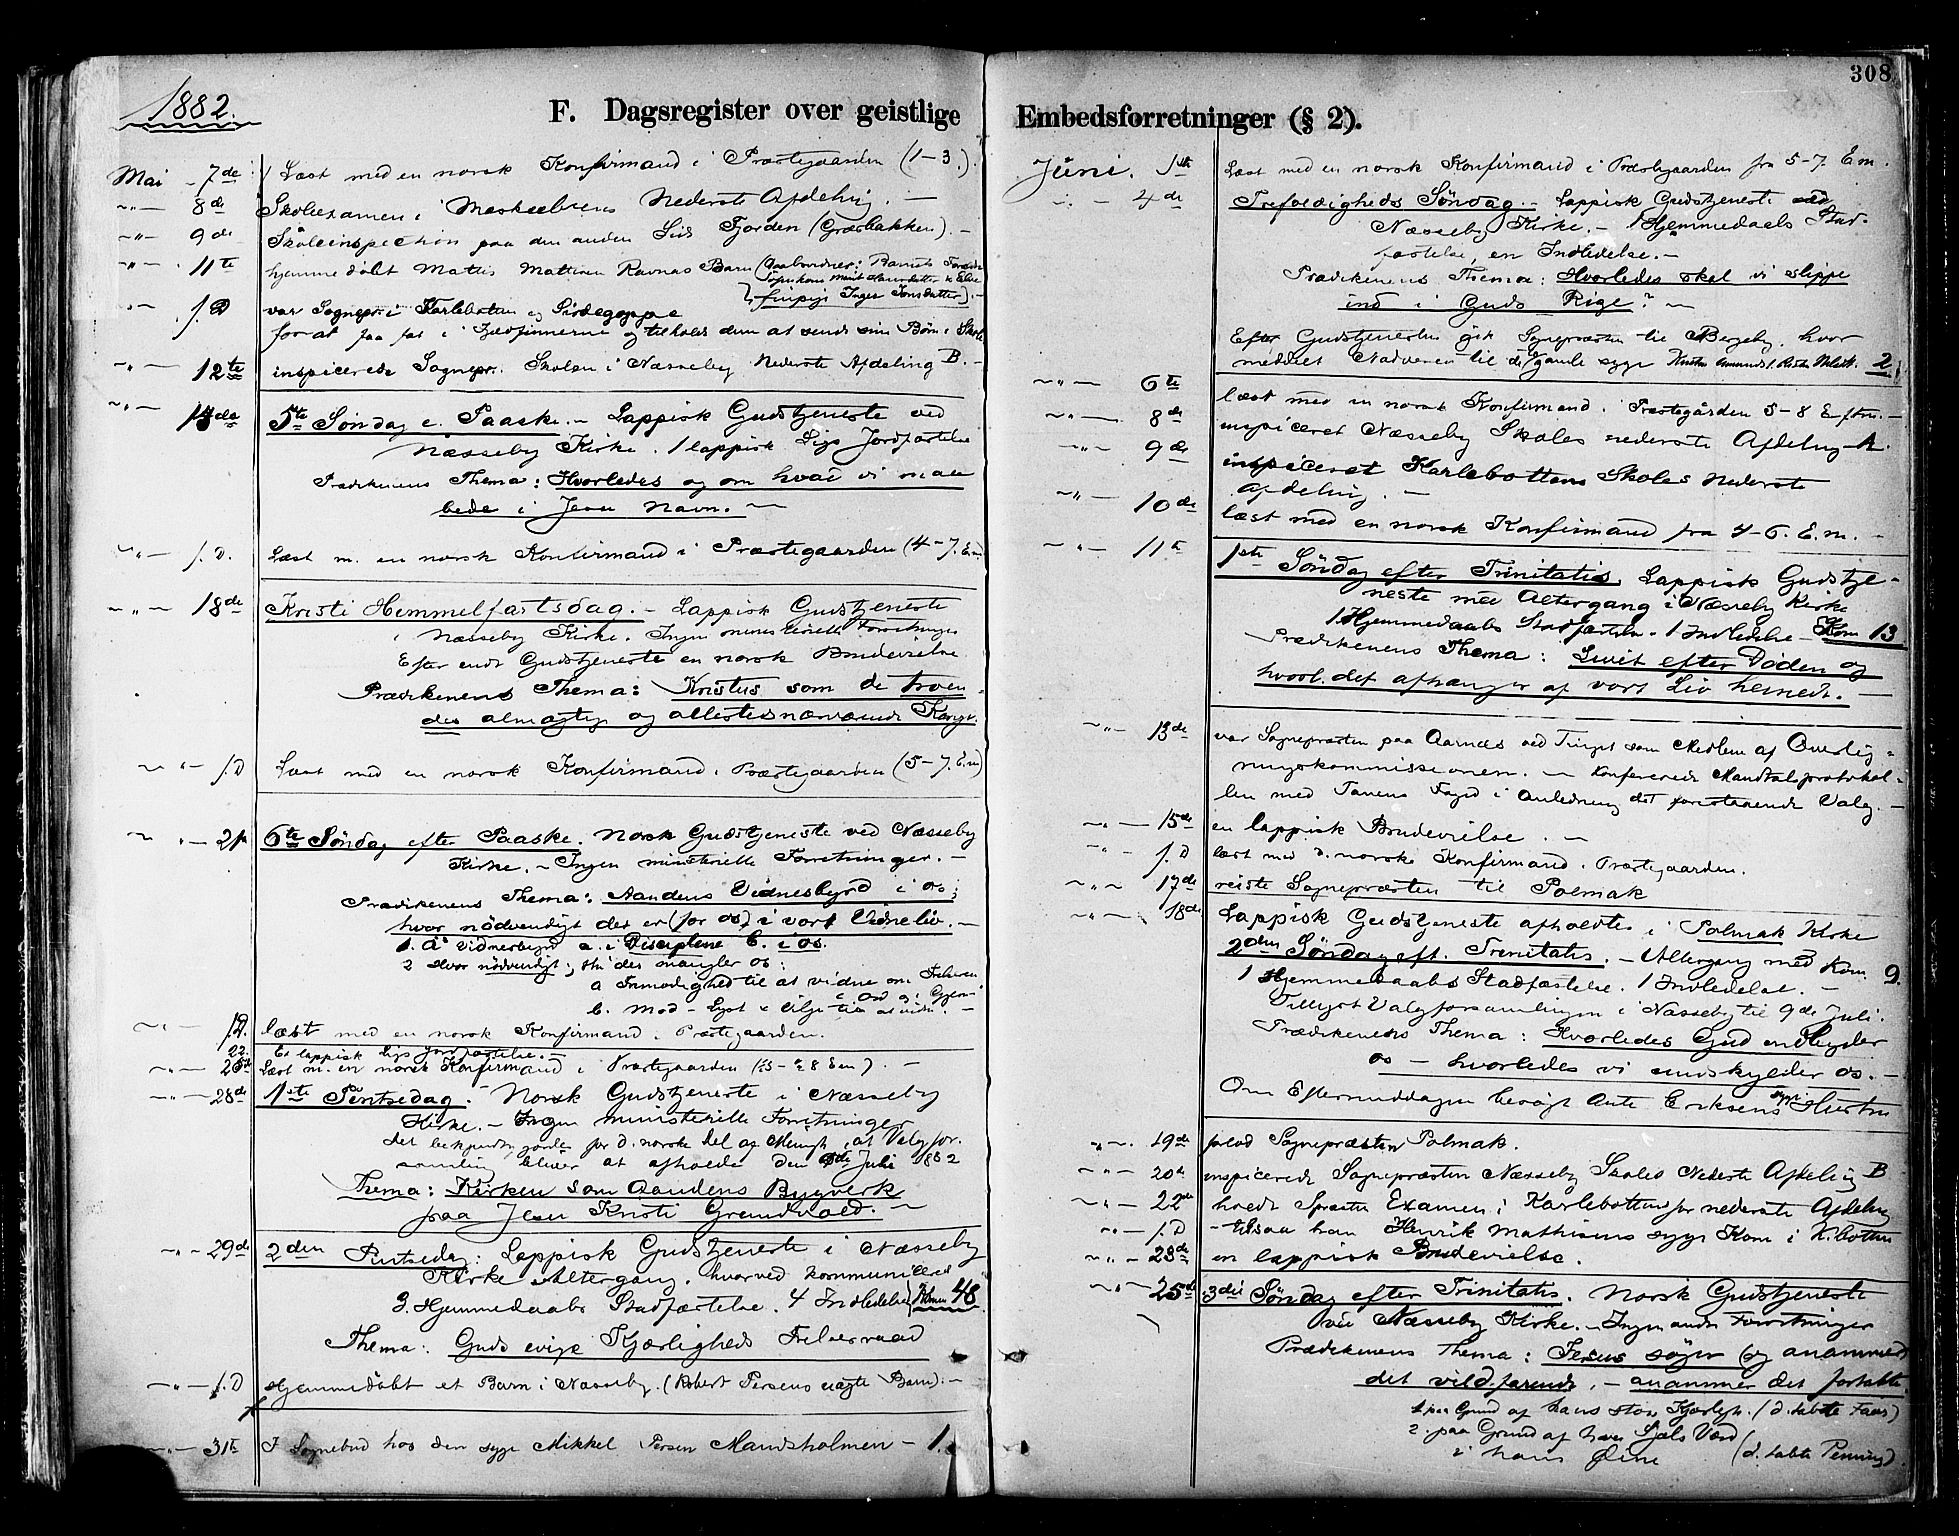 308
1882.
F. Dagsregister over geistlige
Embedsforretninger (§ 2).
Mai 7de Læst med en norsk Konfirmand i Præstegaarden (1-3.)
-"- 8de Skoleexamen i Nederste Afdeling. -
-"- 9de Skoleinspection paa den anden Side Fjorden (Græsbakken). -
-"- 11te hjemmedøbt Mattis Mattisen Ravnas Barn
finpige Inger Jonsdatter). -
-"- s.D var Sognepr. i Karlebotten og
for at faa fat i og tilholde dem at sende sine Børn i Skole
-"- 12te inspicerede Sognepr. Skolen i Næsseby Nederste Afdeling B. -
-"- 14de 5te Søndag e. Paaske. - Lappisk Gudstjeneste ved
Næsseby Kirke. 1 lappisk Ligs Jordfæstelse
Prædikenens Thema: Hvorledes og om hvad vi maa
bede i Jesu Navn. -
-"- s.D. Læst m. en norsk Konfirmand i Præstegaarden (4-7. E.m)
-"- 18de Kristi Himmelfartsdag. - Lappisk Gudstjeneste
i Næsseby Kirke. Ingen ministerielle Forretninger
Efter endt Gudstjeneste en norsk Brudevielse.
Prædikenens Thema: Kristus som de troen-
des almægtige og allestedsnærværende Konge.
-"- s.D Læst med en norsk Konfirmand i Præstegaarden (5-7. E.m)
-"- 21 6te Søndag efter Paaske. Norsk Gudstjeneste ved Næsseby
Kirke. - Ingen ministerielle Forretninger. -
Prædikenens Thema: Aandens Vidnesbyrd i os;
hvor nødvendigt det er (for os) i vort Vidneliv. -
1. Aa Vidnesbyrd a. i Disciplene b. i os.
2 Hvor nødvendigt; thi des mangler os:
a Inmodighed til at vidne om Frelseren
b. Mod - Lyst & Vilje til at vidne. -
-"- s.D. læst med en norsk Konfirmand i Præstegaarden.
22. Et lappisk Ligs Jordfæstelse. -
-"- 25de Læst m. en norsk Konfirmand i Præstegaarden
-"- 28de 1ste Pintsedag. - Norsk Gudstjeneste i Næsseby
Kirke. - Ingen ministerielle Forretninger
Det bekjendtgjordes for d. norske Del af Menigh. at Valgfor-
samling bliver at afholde den 9de Juli 1882
Thema: Kirken som Aandens Bygverk
paa Jesu Kristi Grundvold. -
-"- 29de 2den Pintsedag: Lappisk Gudstjeneste i Næsseby
Kirke Altergang, hvorved kommunicered
3. Hjemmedaabs Stadfæstelse. 4 Indledelse 48
Thema: Guds evige Kjærligheds Frelserraad
-"- s.D Hjemmedøbt et Barn i Næsseby. (Robert Persens uægte Barn). -
-"- 31te I Sognebud hos den syge Mikkel Persen Mandsholmen - 1.
Juni. 1ste Læst med en norsk Konfirmand i Præstegaarden fra 5-7. E.m.
-"- 4de Trefoldigheds Søndag. - Lappisk Gudstjeneste ved
Næsseby Kirke. - 1 Hjemmedaabs Stad-
fæstelse, en Indledelse. -
Prædikenens Thema: Hvorledes skal vi slippe
ind i Guds Rige? -
Efter Gudstjenesten gik Sognepræsten til Bergeby, hvor
meddelet Nadveren til de gamle syge 2
-"- 6te læst med en norsk Konfirmand i Præstegården 5-8 Eftm. -
-"- 8de inspiceret Næsseby Skoles nederste Afdeling A.
-"- 9de inspiceret Karlebottens Skoles Nederste
Afdeling. -
-"- 10de læst med en norsk Konfirmand fra 4-6. E.m. -
-"- 11te 1ste Søndag efter Trinitatis. Lappisk Gudstje-
neste med Altergang i Næsseby Kirke
1 Hjemmedaabs Stadfæstelse - 1 Indledelse - Kom 13
Prædikenens Thema: Livet efter Døden og
hvorl. det afhænger af vort Liv herneder. -
-"- 13de var Sognepræsten paa Aarnæs ved Tinget som Medlem af Overlig-
ningskommissionen. - Konfererede Mandtalsprotokol-
len med Tanens Foged i Anledning det forestaaende Valg. -
-"- 15de en lappisk Brudevielse. -
-"- s.D læst med d. norske Konfirmand i Præstegaarden.
-"- 17de reiste Sognepræsten til Polmak
-"- 18de Lappisk Gudstjeneste afholdtes i Polmak Kirke
2den Søndag eft. Trinitatis. - Altergang med Kom. 9.
1 Hjemmedaabs Stadfæstelse. 1 Indledelse. -
Tillyst Valgforsamlingen i Næsseby til 9de Juli.
Prædikenens Thema: Hvorledes Gud indbyder
os - hvorledes vi undskylder os. -
Om Eftermiddagen besøgt Ante Eriksens syge Hustru
-"- 19de forlod Sognepræsten Polmak.
-"- 20de inspicerede Sognepræsten Næsseby Skoles Nederste Afdeling B
-"- 22de holdt Examen i Karlebotten for nederste Afdeling
-"- s.D - tilsaa han Henrik Mathisens syge Kone i K.botten
-"- 23de en lappisk Brudevielse.
-"- 25de 3die Søndag efter Trinitatis. Norsk Gudstjeneste
ved Næsseby Kirke. - Ingen andre Forretninger
Prædikenens Thema: Jesus søger og anammer
det vildfarende, - anammer det fortabte.
1 paa Grund af hans store Kjærligh. (d. tabte Faar)
2. paa Grund af hver Sjæls Værd
i hans Øine (d. tabte Penning).